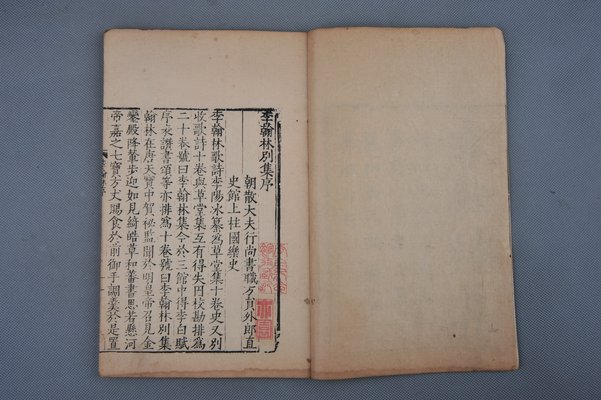 李翰林別集序
朝散大夫行尚書職方員外郎直
史館上柱國樂史
李翰林歌詩李陽冰纂為草堂集十卷史又別
收歌詩十卷與草堂集互有得失因校勘排為
二十卷號曰李翰林集今於三館中得李白賦
序表讚書頌等亦排為十卷號曰李翰林別集
翰林在唐天寶中賀秘監聞於明皇帝召見金
鑾殿降輦步迎如見綺皓草和蕃書思若懸河
帝嘉之七寶方丈賜食於前御手調羹於是置